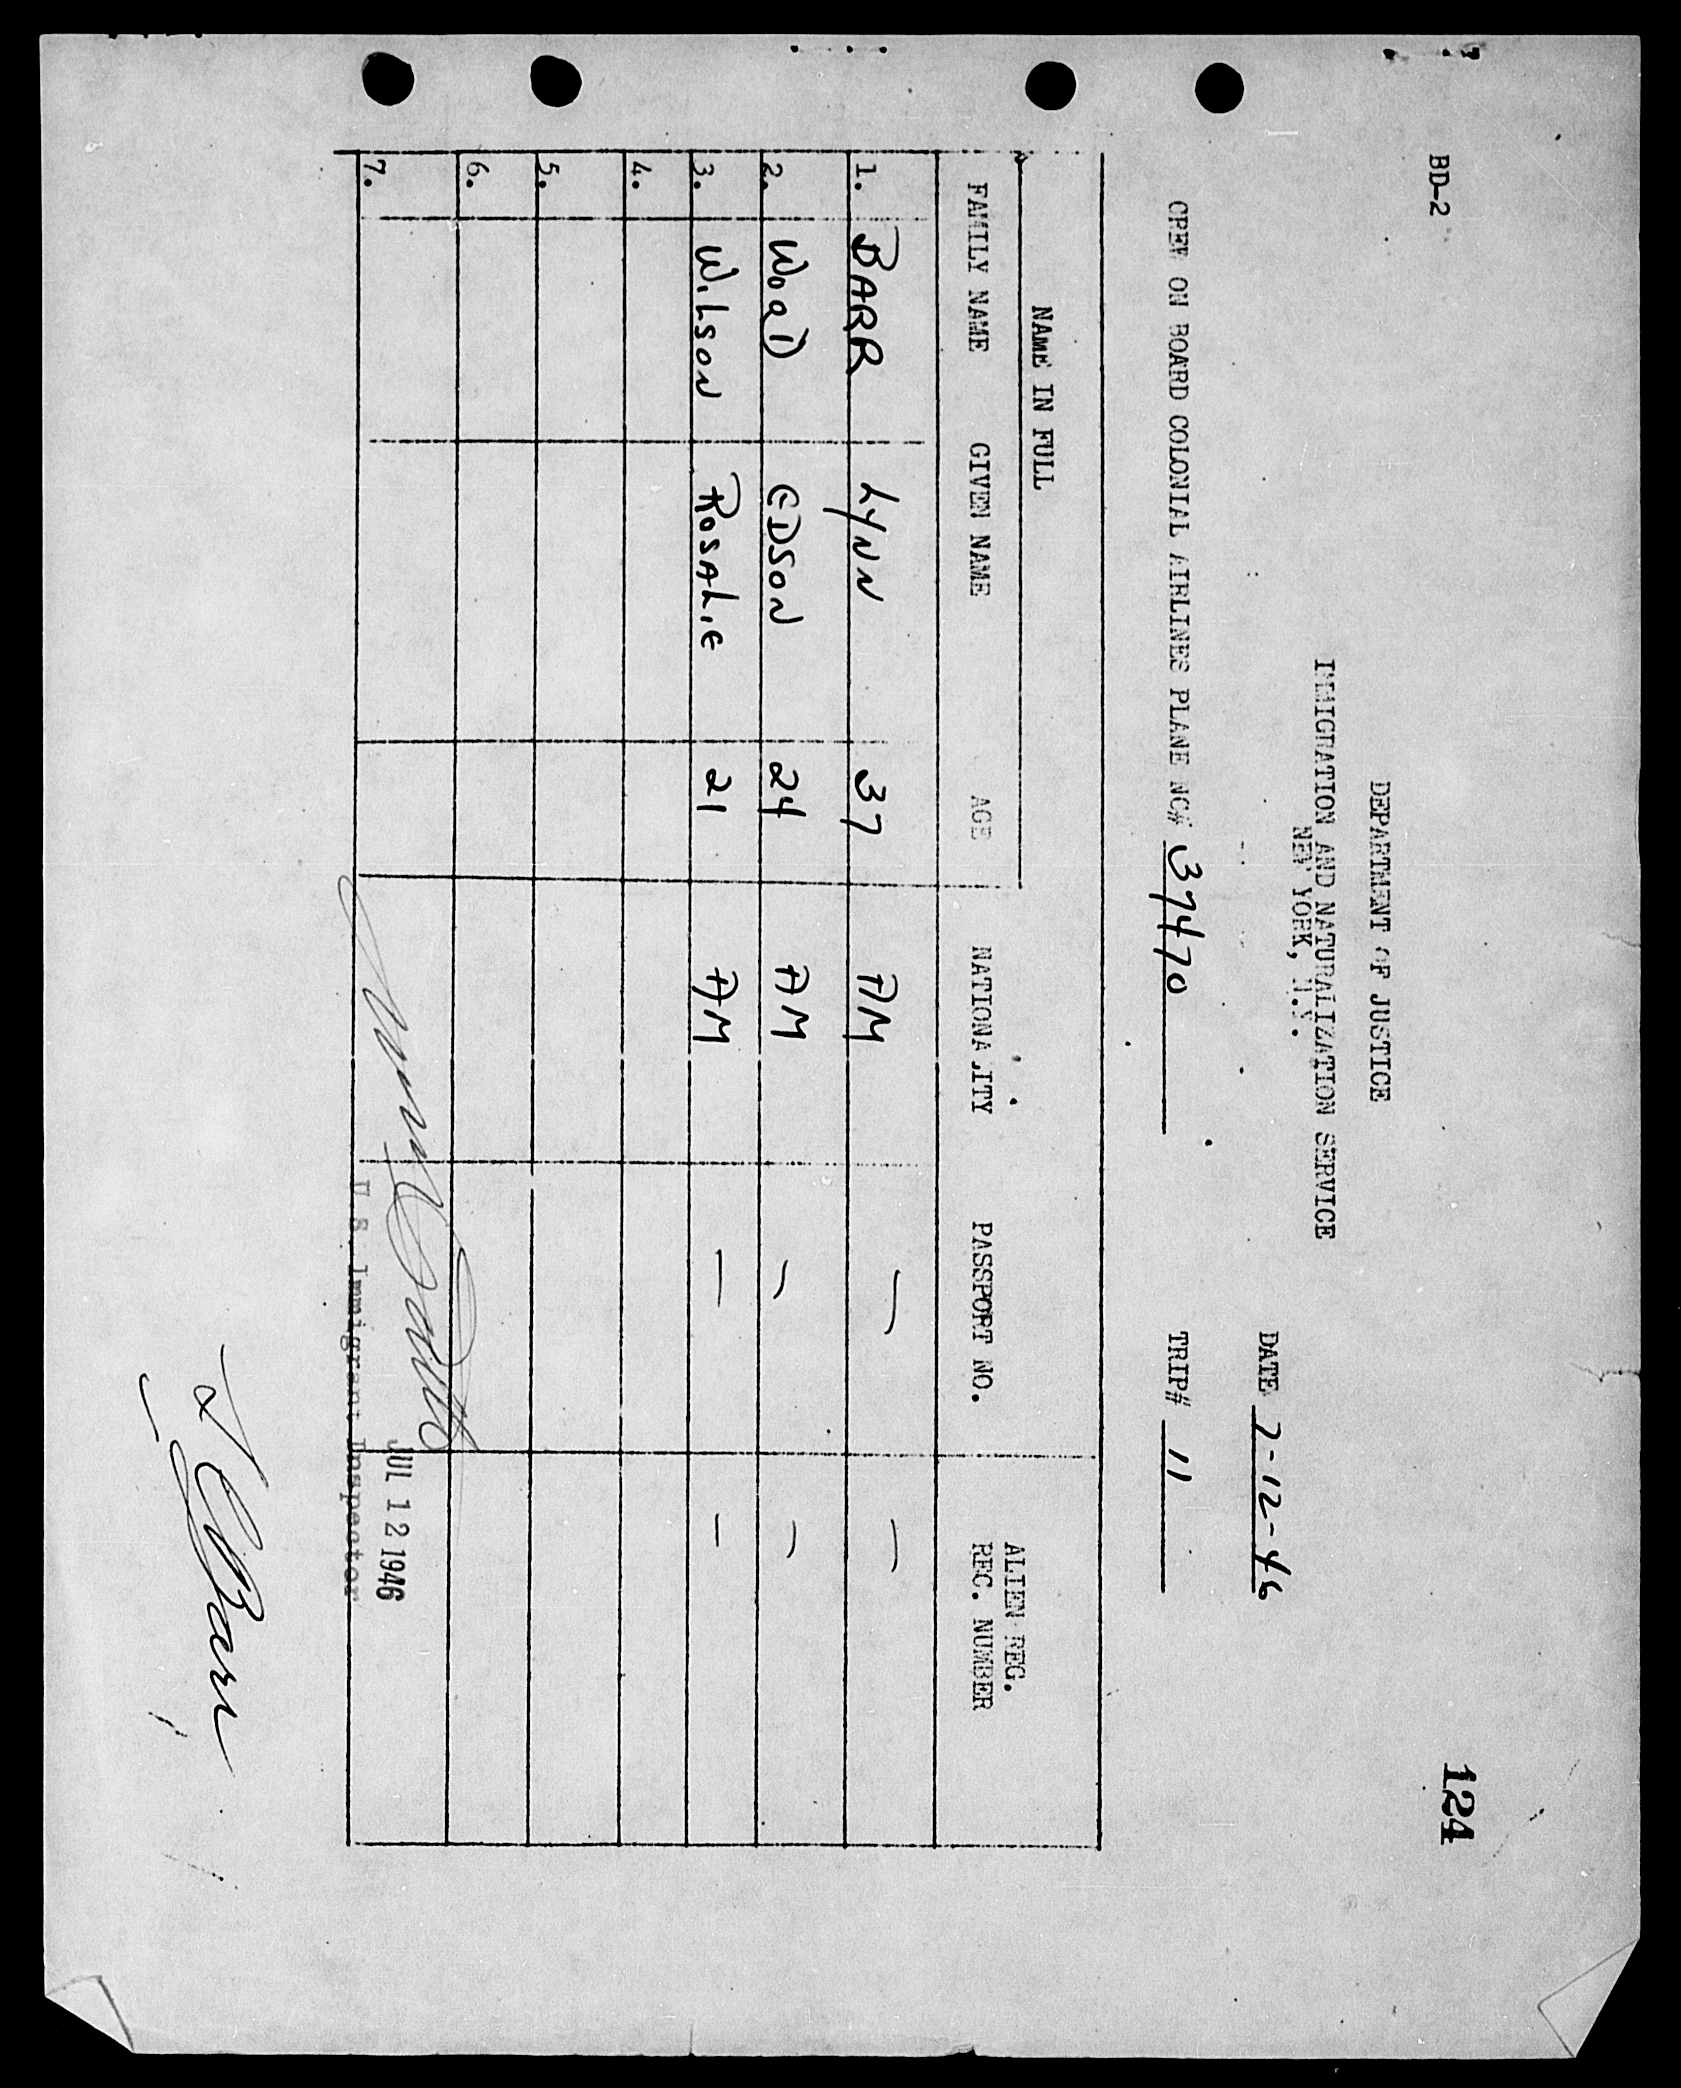 BD-2
124
DEPARTMENT OF JUSTICE
IMMIGRATION AND NATURALIZATION SERVICE
NEW YORK, N.Y.
DATE 7-12-46
CREW ON BOARD COLONIAL AIRLINES PLANE NC# 37470 TRIP# 11
NAME IN FULL
ALIEN REG.
FAMILY NAME GIVEN NAME AGE NATIONALITY PASSPORT NO. REC. NUMBER
1. BARR LYNN 37 AM — —
2. WOOD EDSON 24 AM — —
3. WILSON ROSALIE 21 AM — —
4.
5.
6.
7.
JUL 12 1946
U. S. Immigrant Inspector
Barr